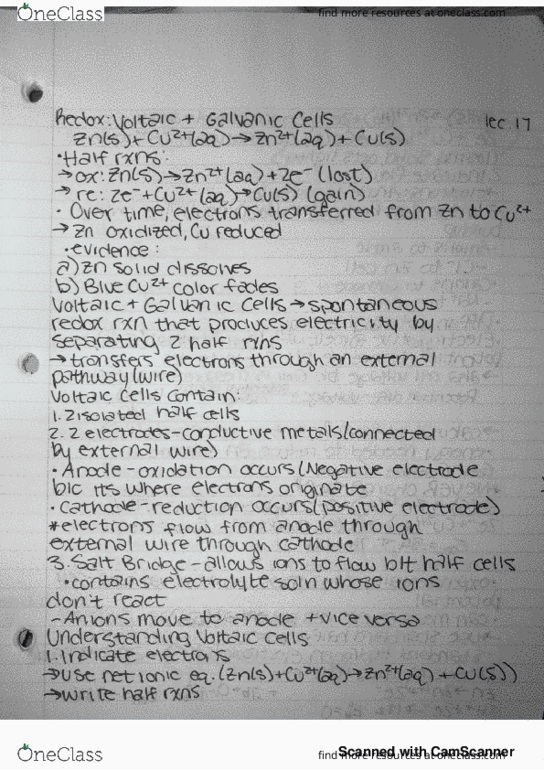 OneClass
find more resources at oneclass.com
Redox: Voltaic + Galvanic Cells
lec. 17
Zn(s) + Cu²⁺(aq) → Zn²⁺(aq) + Cu(s)
• Half rxns:
→ ox: Zn(s) → Zn²⁺(aq) + 2e⁻ (lost)
→ re: 2e⁻ + Cu²⁺(aq) → Cu(s) (gain)
• Over time, electrons transferred from Zn to Cu²⁺
→ Zn oxidized, Cu reduced
• evidence:
a) Zn solid dissolves
b) Blue Cu²⁺ color fades
Voltaic + Galvanic Cells → spontaneous
redox rxn that produces electricity by
separating 2 half rxns
→ transfers electrons through an external
pathway (wire)
Voltaic Cells contain:
1. 2 isolated half cells
2. 2 electrodes - conductive metals (connected
by external wire)
• Anode - oxidation occurs (Negative electrode
b/c its where electrons originate
• Cathode - reduction occurs (positive electrode)
* electrons flow from anode through
external wire through cathode
3. Salt Bridge - allows ions to flow b/t half cells
• contains electrolyte soln whose ions
don't react
- Anions move to anode + vice versa
Understanding Voltaic Cells
1. Indicate electrons
→ Use net ionic eq. (Zn(s) + Cu²⁺(aq) → Zn²⁺(aq) + Cu(s))
→ write half rxns
OneClass
find more resources at oneclass.com
Scanned with CamScanner